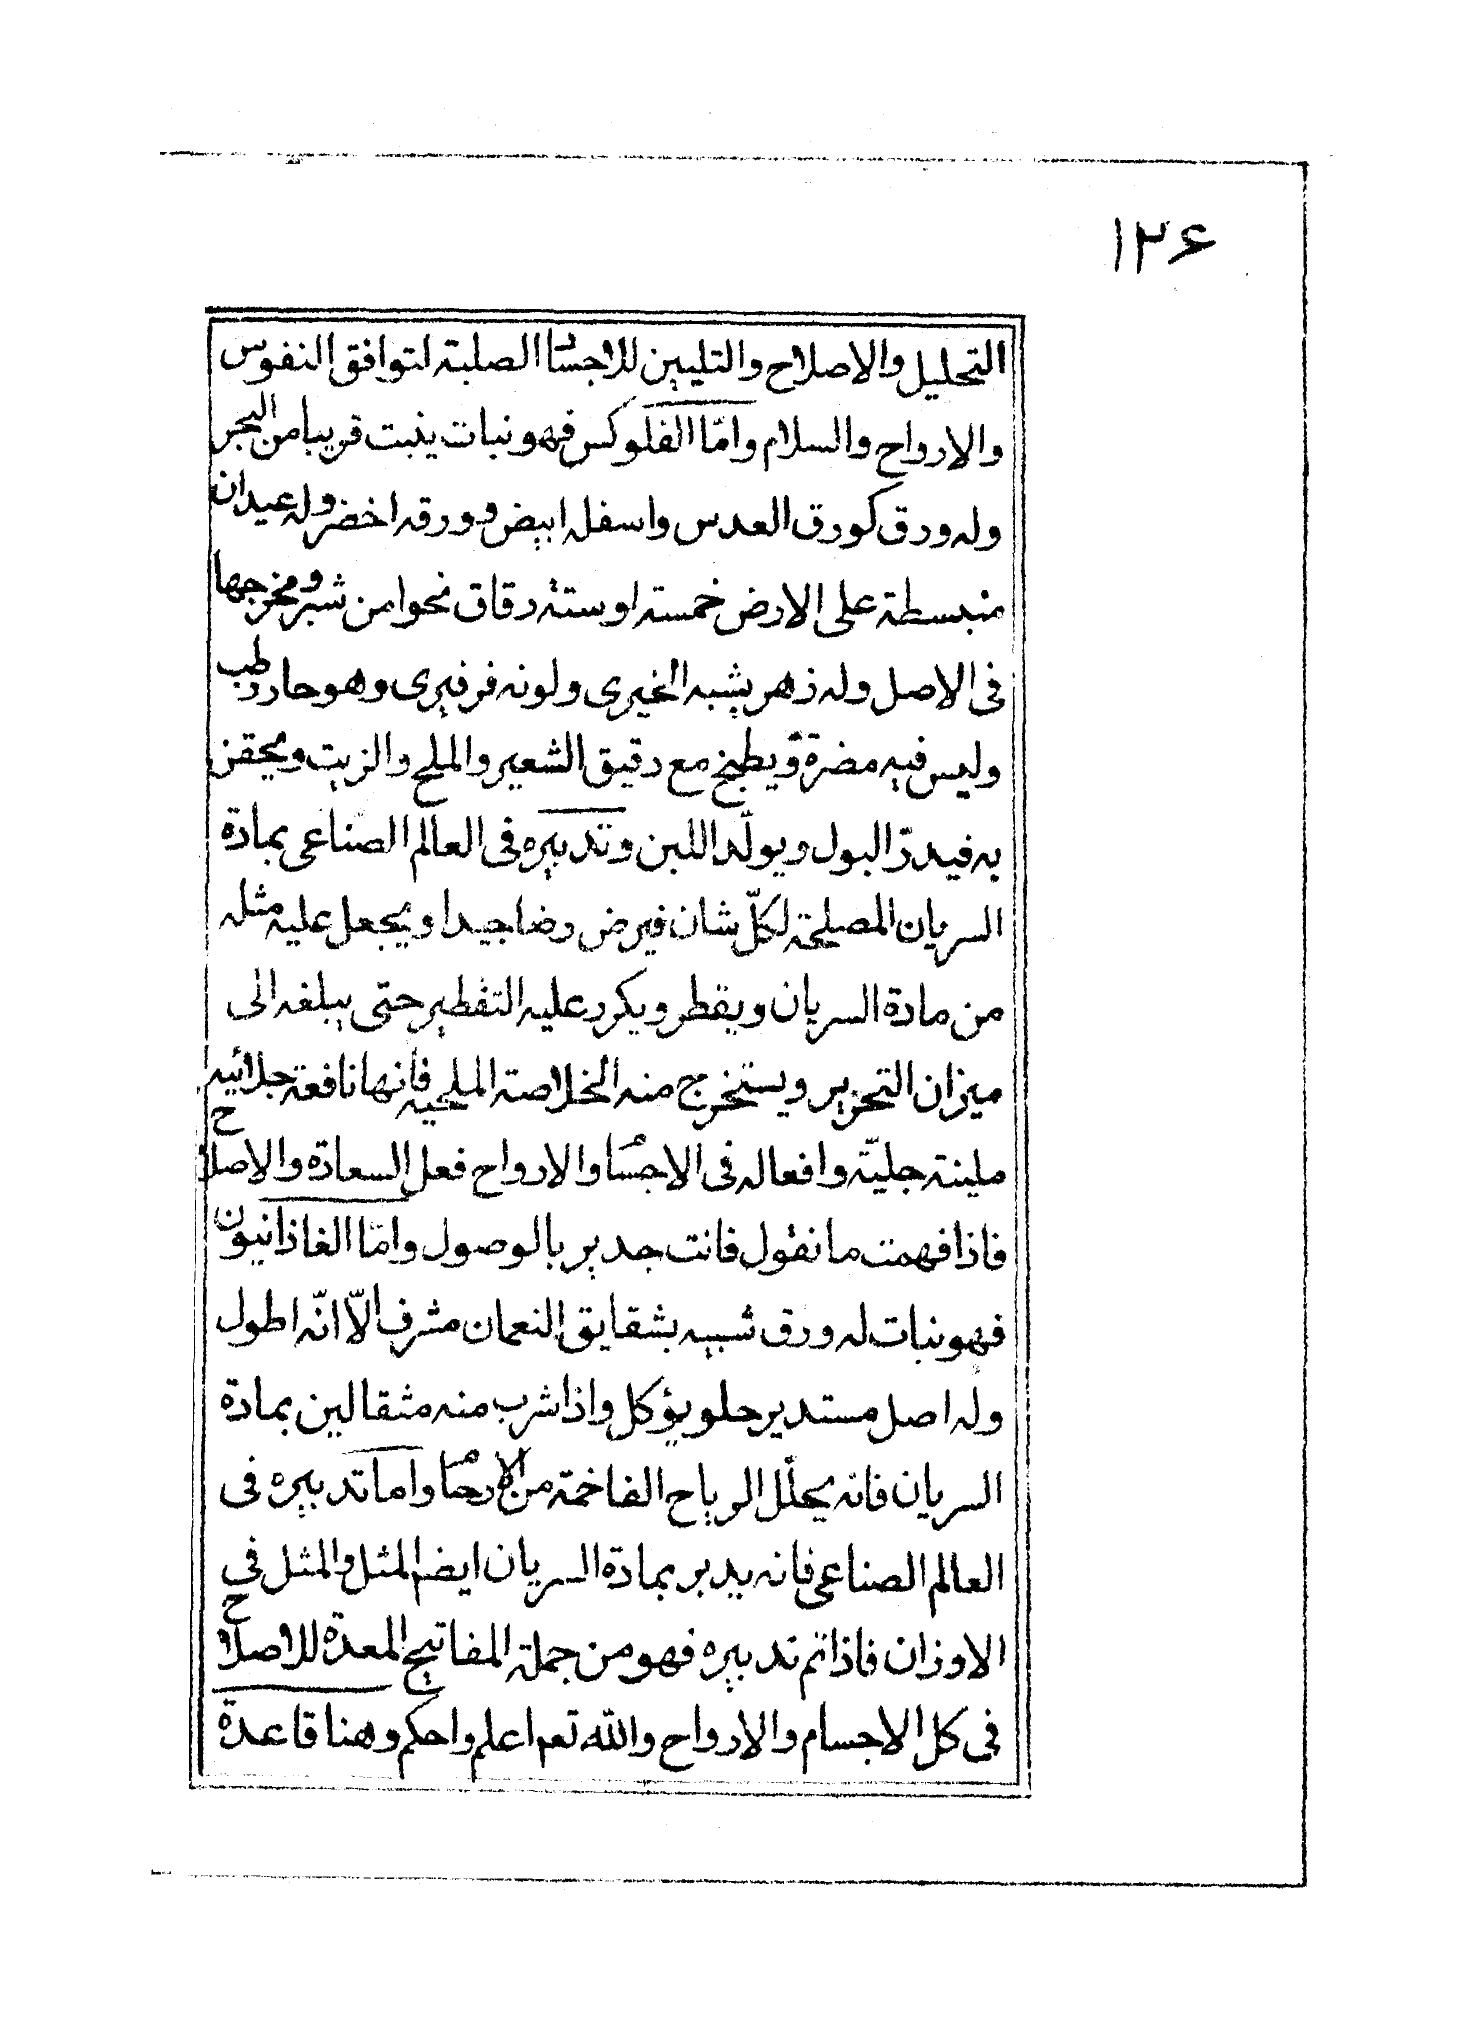 ١٢۶
التحليل والاصلاح والتليين للاجساد الصلبة لتوافق النفوس
والارواح والسلام وامّا الفلوكس فهو نبات ينبت قريبا من البحر
وله ورق كورق العدس واسفله ابيض وورقه اخضر وله عيدان
منبسطة على الارض خمسة او ستة دقاق نحوا من شبر ومخرجها
فى الاصل وله زهر يشبه الخيرى ولونه فرفيرى وهو حار رطب
وليس فيه مضرة ويطبخ مع دقيق الشعير والملح والزيت ويحقن
به فيدرّ البول ويولّد اللبن وتدبيره فى العالم الصناعى بمادة
السريان المصلحة لكلّ شان فيرض رضا جيدا ويجعل عليه مثله
من مادة السريان ويقطر ويكرر عليه التقطير حتى يبلغه الى
ميزان التحرير ويستخرج منه الخلاصة الملحيه فانها نافعة جلائيه
ملينة جليّة وافعاله فى الاجسا والارواح فعل السعادة والاصلاح
فاذا فهمت ما نقول فانت جدير بالوصول وامّا الغاذانيون
فهو نبات له ورق شبيه بشقايق النعمان مشرف الّا انّه اطول
وله اصل مستدير حلو يؤكل واذا شرب منه مثقالين بمادة
السريان فانه يحلّل الرياح الفاخمة من الارحا واما تدبيره فى
العالم الصناعى فانه يدبر بمادة السريان ايضا المثل والمثل فى
الاوزان فاذا تم تدبيره فهو من جملة المفاتيح المعدة للاصلاح
فى كل الاجسام والارواح والله تعم اعلم واحكم وهنا قاعدة